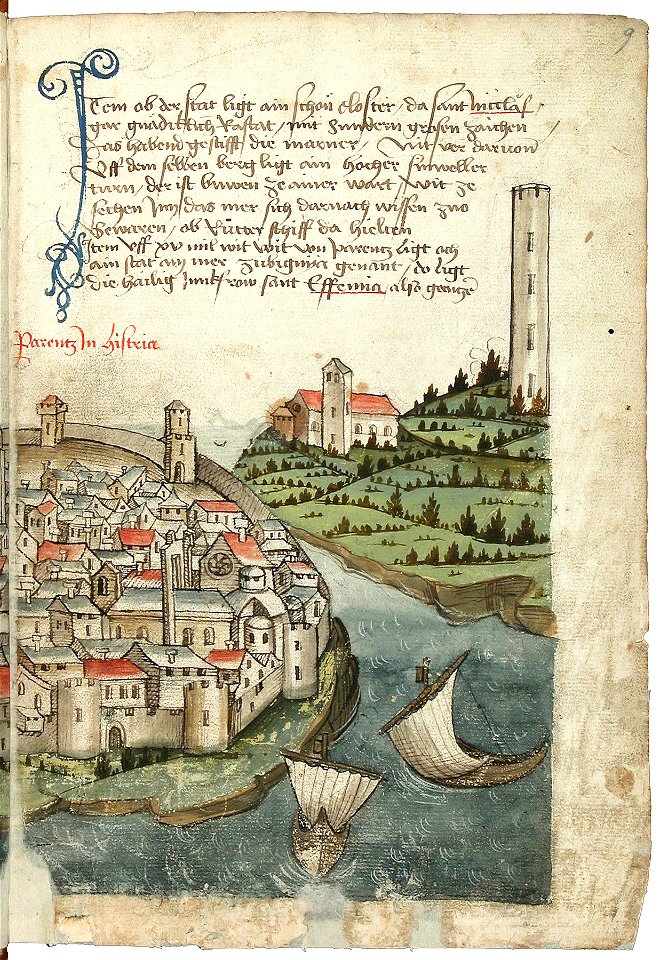 9
Item ob der stat ligt ain schön closter, da sant Nicclas
gar gnädiklich Rastat, mit zundern grosen zaichen
Das habend gestifft die marner, Nit ver darvon
Uff dem selben berg ligt ain hocher sinweller
turn, der ist buwen ze ainer wart, wit ze
sechen Inn das mer sich darnach wissen zuo
Bewaren, ob Rutter schiff da hielten
Item Uff xv mil wit wit von parentz ligt och
ain stat am mer zubiginia genant, do ligt
die hailig Junkfrow sant Effemia, also gentz
Parentz In histria